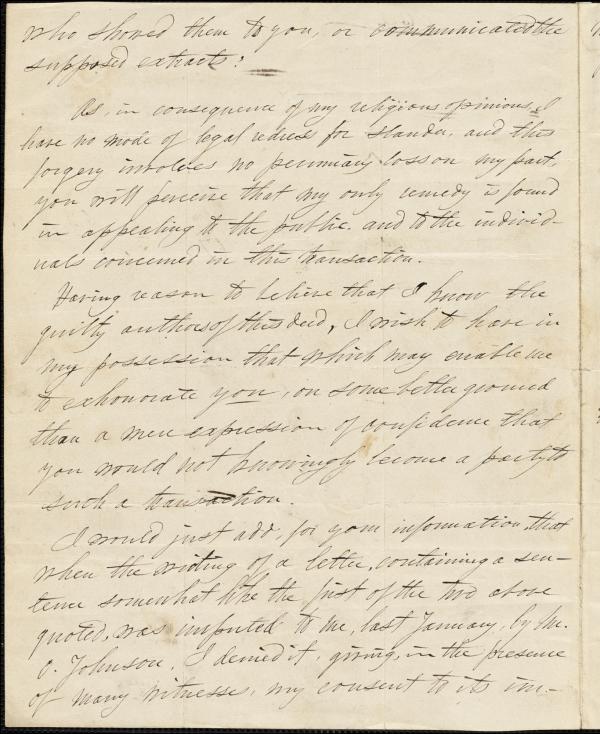 who showed them to you, or communicated the
supposed extracts?
As, in consequence of my religious opinions, I
have no mode of legal redress for slander, and this
forgery involves no pecuniary loss on my part,
you will perceive that my only remedy is found
in appealing to the public, and to the individ-
uals concerned in this transaction.
Having reason to believe that I know the
guilty authors of this deed, I wish to have in
my possession that which may enable me
to exhonorate you, on some better ground
than a mere expression of confidence that
you would not knowingly become a party to
such a transaction.
I would just add, for your information, that
when the writing of a letter, containing a sen-
tence somewhat like the first of the two above
quoted, was imputed to me, last January, by Mr.
O. Johnson, I denied it, giving, in the presence
of many witnesses, my consent to its im-